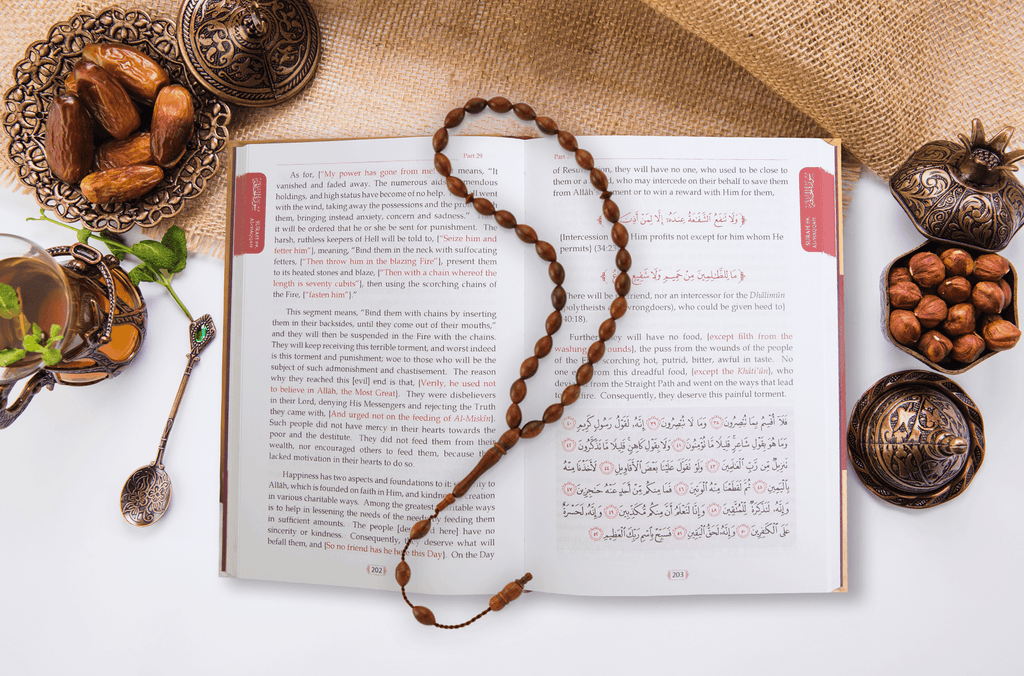 Part 29
As for, ["My power has gone from means, "It
vanished and faded away. The numerous aids,
holdings, and high status have become of no help.
with the wind, taking away the possessions and the
them, bringing instead anxiety, concern and sadness."
it will be ordered that he or she be sent for punishment. The
harsh, ruthless keepers of Hell will be told to, ["Seize him and
fetter him"], meaning, "Bind them in the neck with suffocating
fetters, ["Then throw him in the blazing Fire"], present them
to its heated stones and blaze, ["Then with a chain whereof the
length is seventy cubits"], then using the scorching chains of
the Fire, ["fasten him"]."
This segment means, "Bind them with chains by inserting
them in their backsides, until they come out of their mouths,"
and they will then be suspended in the Fire with the chains.
They will keep receiving this terrible torment, and worst indeed
is this torment and punishment; woe to those who will be the
subject of such admonishment and chastisement. The reason
why they reached this [evil] end is that, [Verily, he used not
to believe in Allâh, the Most Great]. They were disbelievers
in their Lord, denying His Messengers and rejecting the Truth
they came with, [And urged not on the feeding of Al-Miskîn].
Such people did not have mercy in their hearts towards the
poor and the destitute. They did not feed them from their
wealth, nor encouraged others to feed them, because
lacked motivation in their hearts to do so.
Happiness has two aspects and foundations to it:
Allâh, which is founded on faith in Him, and creation
in various charitable ways. Among the greatest ways
is to help in lessening the needs of the needy by feeding them
in sufficient amounts. The people here] have no
sincerity or kindness. Consequently, deserve what will
befall them, and [So no friend has he here this Day]. On the Day
202
SURAH 69
AL-HAAQQAH
Part
of Resurrection, they will have no one, who used to be close to
them or a who may intercede on their behalf to save them
from Allâh's or to win a reward with Him for them,
﴿وَلَا تَنفَعُ الشَّفَاعَةُ عِندَهُ إِلَّا لِمَنْ أَذِنَ
[Intercession Him profits not except for him whom He
permits] (34:23
﴿مَا لِلظَّالِمِينَ مِنْ حَمِيمٍ وَلَا شَفِيعٍ
friend, nor an intercessor for the Dhâlimûn
(polytheists wrongdoers), who could be given heed to)
40:18).
they will have no food, [except filth from the
washing wounds], the puss from the wounds of the people
of scorching hot, putrid, bitter, awful in taste. No
one from this dreadful food, [except the Khâti'ûn], who
from the Straight Path and went on the ways that lead
Consequently, they deserve this painful torment.
فَلَا أُقْسِمُ بِمَا تُبْصِرُونَ ٣٨ وَمَا لَا تُبْصِرُونَ ٣٩ إِنَّهُ لَقَوْلُ رَسُولٍ كَرِيمٍ ٤٠
وَمَا هُوَ بِقَوْلِ شَاعِرٍ قَلِيلًا مَّا تُؤْمِنُونَ ٤١ وَلَا بِقَوْلِ كَاهِنٍ قَلِيلًا مَّا تَذَكَّرُونَ ٤٢
تَنزِيلٌ مِّن رَّبِّ الْعَالَمِينَ ٤٣ وَلَوْ تَقَوَّلَ عَلَيْنَا بَعْضَ الْأَقَاوِيلِ ٤٤ لَأَخَذْنَا مِنْهُ
بِالْيَمِينِ ٤٥ ثُمَّ لَقَطَعْنَا مِنْهُ الْوَتِينَ ٤٦ فَمَا مِنكُم مِّنْ أَحَدٍ عَنْهُ حَاجِزِينَ ٤٧
وَإِنَّهُ لَتَذْكِرَةٌ لِّلْمُتَّقِينَ ٤٨ وَإِنَّا لَنَعْلَمُ أَنَّ مِنكُم مُّكَذِّبِينَ ٤٩ وَإِنَّهُ لَحَسْرَةٌ
عَلَى الْكَافِرِينَ ٥٠ وَإِنَّهُ لَحَقُّ الْيَقِينِ ٥١ فَسَبِّحْ بِاسْمِ رَبِّكَ الْعَظِيمِ ٥٢
203
SURAH 69
AL-HAAQQAH